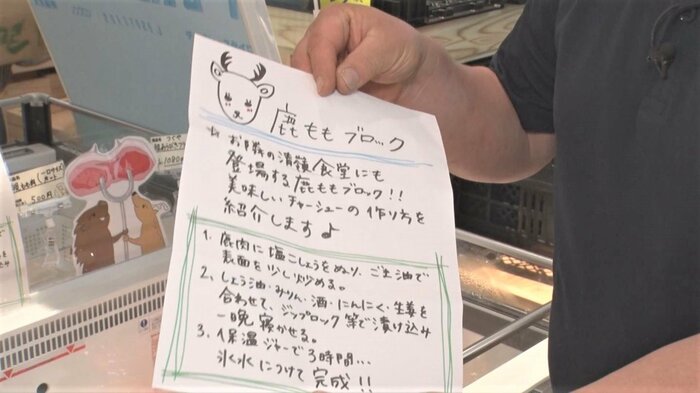 鹿もも ブロック
☆ お隣の清嶺食堂にも
登場する鹿ももブロック!!
美味しいチャーシューの作り方を
紹介します♪
1. 鹿肉に塩こしょうをぬり、ごま油で
表面を少し炒める。
2. しょう油・みりん・酒・にんにく・生姜を
合わせて、ジップロック等で漬け込み
一晩寝かせる。
3. 保温ジャーで3時間…
氷水につけて完成!!
500円